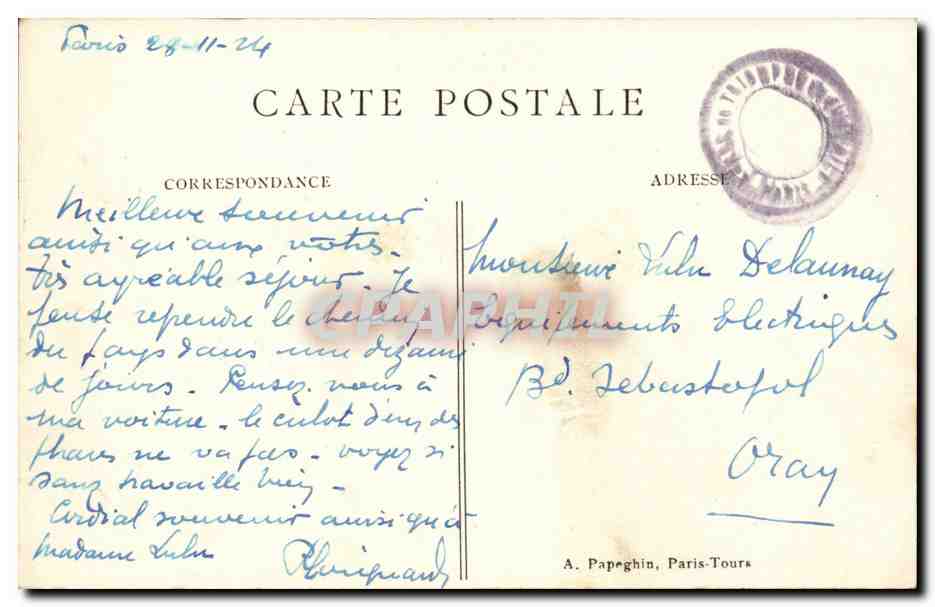 Paris 28-11-24
CARTE POSTALE
CORRESPONDANCE
ADRESSE
Meilleur souvenir
ainsi qu'aux vôtres.
très agréable séjour. Je
pense reprendre le chemin
du pays dans une dizaine
de jours. Pensez vous à
ma voiture. le culot d'un des
phares ne va pas. voyez si
sans travaille bien.
Cordial souvenir ainsi qu'à
Madame Lulu
Monsieur Lulu Delaunay
Equipements Electriques
Bd. Sebastopol
Oran
CPAPHIL
A. Papeghin, Paris-Tours